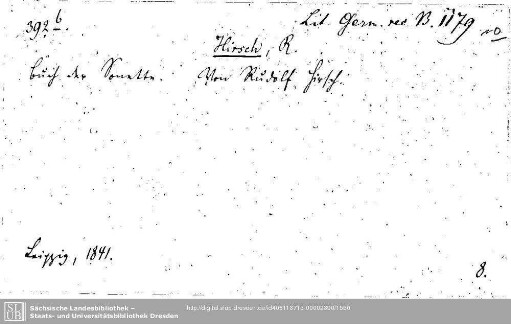 392 b.
Lit. Germ. rec. B. 1179
Hirsch, R.
Buch der Sonette. Von Rudolf Hirsch.
Leipzig, 1841.
8.
Sächsische Landesbibliothek –
Staats- und Universitätsbibliothek Dresden